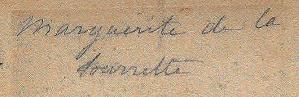 Marguerite de la
Tourrette